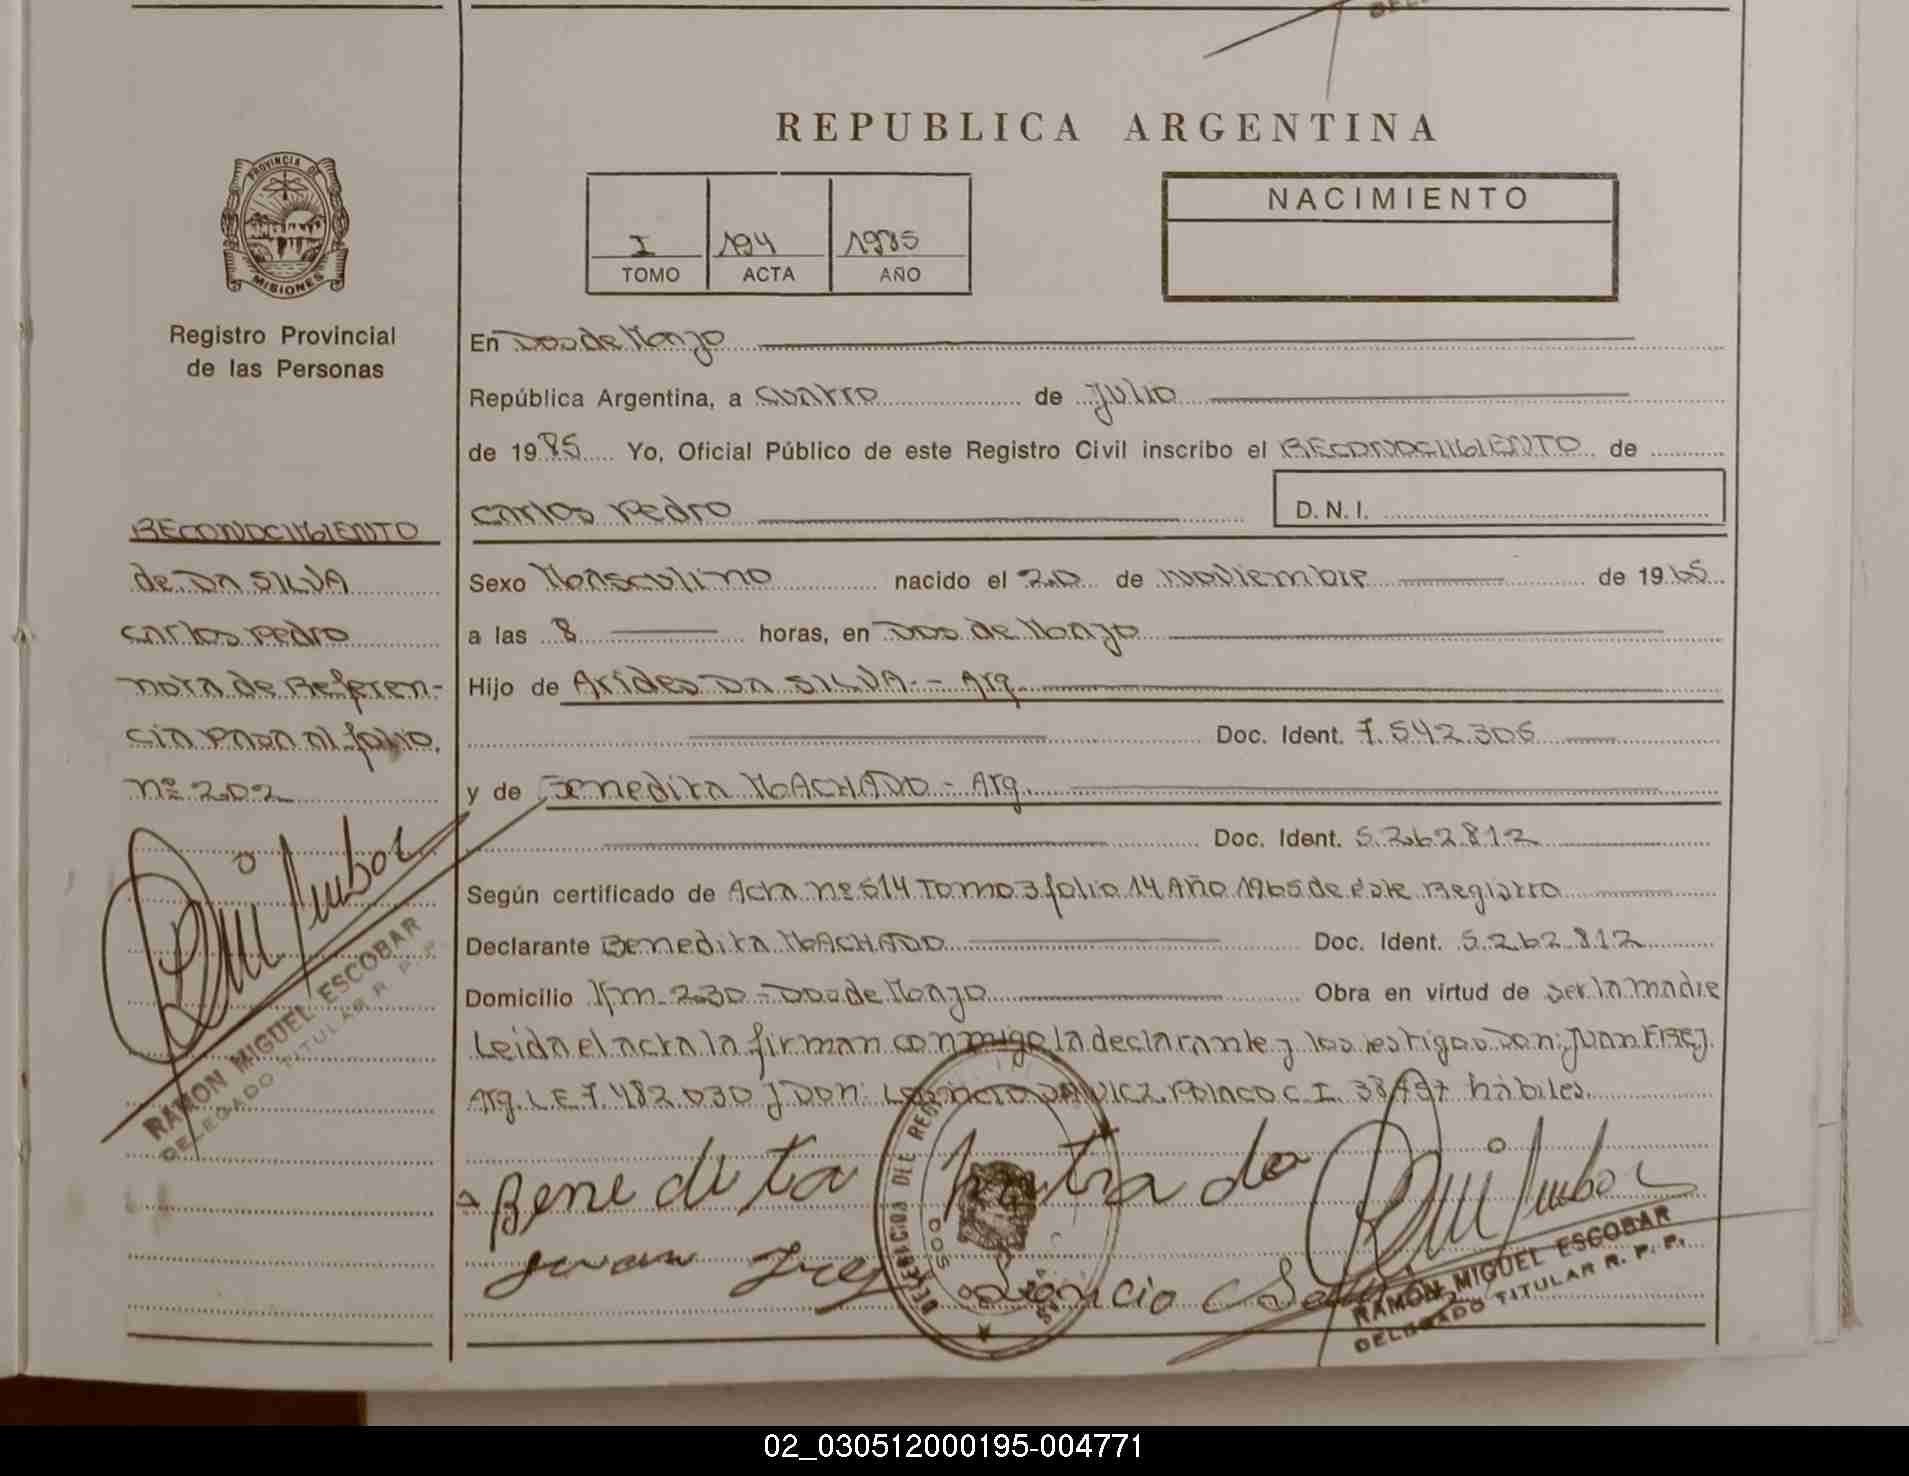 REPUBLICA ARGENTINA
PROVINCIA DE
MISIONES
Registro Provincial
de las Personas
I 194 1985
TOMO ACTA AÑO
NACIMIENTO
En Dos de Mayo
República Argentina, a cuatro de Julio
de 1985 Yo, Oficial Público de este Registro Civil inscribo el RECONOCIMIENTO de
Carlos Pedro
D.N.I.
RECONOCIMIENTO
de DA SILVA
Carlos Pedro
nota de Referen-
cia pasa al folio
nº 202
RAMON MIGUEL ESCOBAR
DELEGADO TITULAR R. P. P.
Sexo Masculino nacido el 20 de noviembre de 1965
a las 8 horas, en Dos de Mayo
Hijo de Arides DA SILVA.- Arg.
Doc. Ident. 7.542.305
y de Benedita MACHADO - Arg.
Doc. Ident. 5.262.812
Según certificado de Acta nº 514 Tomo 3 folio 14 Año 1965 de este Registro
Declarante Benedita MACHADO Doc. Ident. 5.262.812
Domicilio Km. 230 - Dos de Mayo Obra en virtud de ser la madre
Leida el acta la firman conmigo la declarante y los testigos Don: Juan
Arg. L.E 7.482.030 y Don: Polaco C.I. hábiles.
Benedita
Juan
DOS
RAMON MIGUEL ESCOBAR
DELEGADO TITULAR R. P. P.
02_030512000195-004771